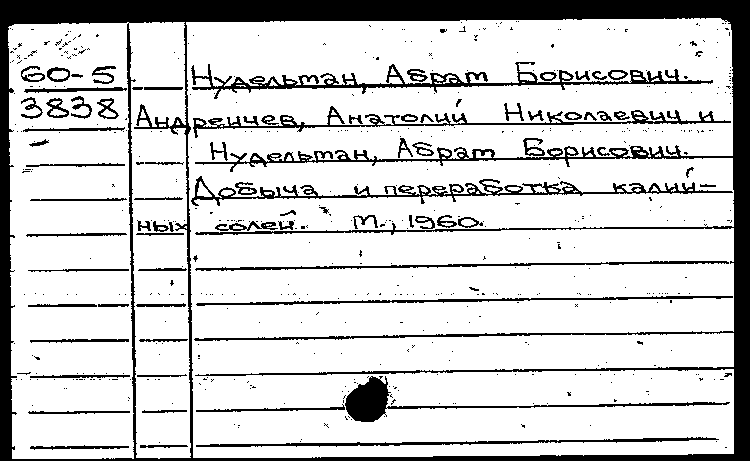 60-5 Нудельман, Абрам Борисович.
3838 Андреичев, Анатолий Николаевич и
Нудельман, Абрам Борисович.
Добыча и переработка калий-
ных солей. М., 1960.